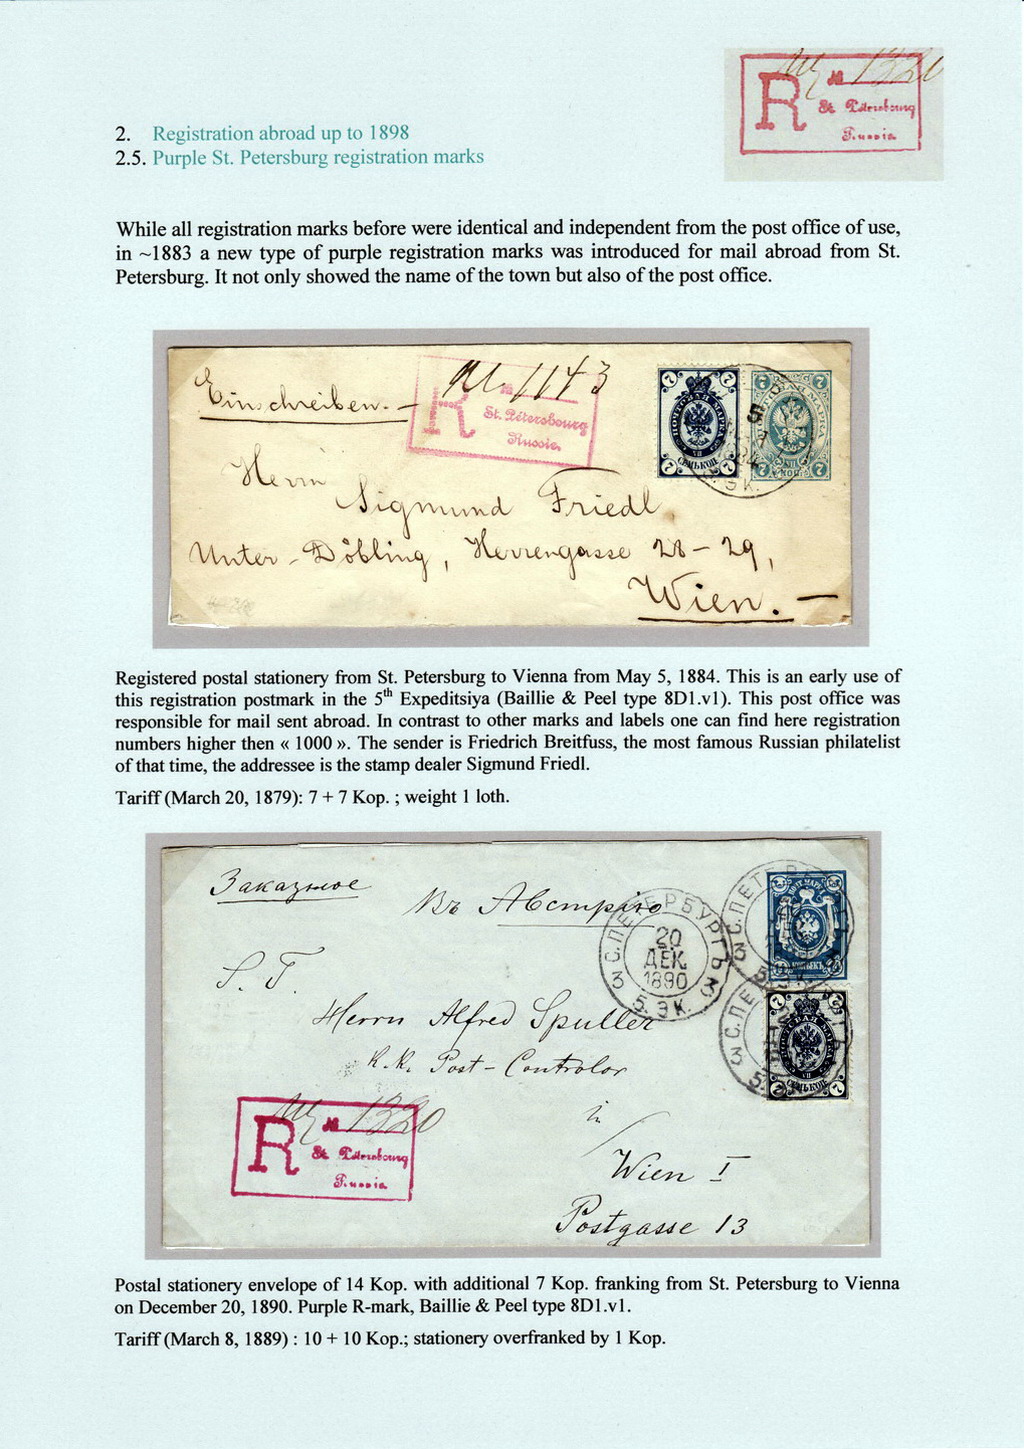 R № 1320
St. Pétersbourg
Russia
2. Registration abroad up to 1898
2.5. Purple St. Petersburg registration marks
While all registration marks before were identical and independent from the post office of use,
in ~1883 a new type of purple registration marks was introduced for mail abroad from St.
Petersburg. It not only showed the name of the town but also of the post office.
Einschreiben. –
R № 1143
St. Pétersbourg
Russie.
7 7
ПОЧТОВАЯ МАРКА
СЕМЬ КОП.
7 7
5
Herrn
Sigmund Friedl,
Unter-Döbling, Herrengasse 28-29,
Wien. –
Registered postal stationery from St. Petersburg to Vienna from May 5, 1884. This is an early use of
this registration postmark in the 5th Expeditsiya (Baillie & Peel type 8D1.v1). This post office was
responsible for mail sent abroad. In contrast to other marks and labels one can find here registration
numbers higher then « 1000 ». The sender is Friedrich Breitfuss, the most famous Russian philatelist
of that time, the addressee is the stamp dealer Sigmund Friedl.
Tariff (March 20, 1879): 7 + 7 Kop. ; weight 1 loth.
Заказное
Въ Австрію
С.ПЕТЕРБУРГЪ
20
ДЕК.
1890
3 5. ЭК. 3
S. T.
Herrn Alfred Spuller
k. k. Post-Controlor
in
Wien I
Postgasse 13
R № 1320
St. Pétersbourg
Russia
7 7
ПОЧТОВАЯ МАРКА
СЕМЬ КОП.
Postal stationery envelope of 14 Kop. with additional 7 Kop. franking from St. Petersburg to Vienna
on December 20, 1890. Purple R-mark, Baillie & Peel type 8D1.v1.
Tariff (March 8, 1889) : 10 + 10 Kop.; stationery overfranked by 1 Kop.